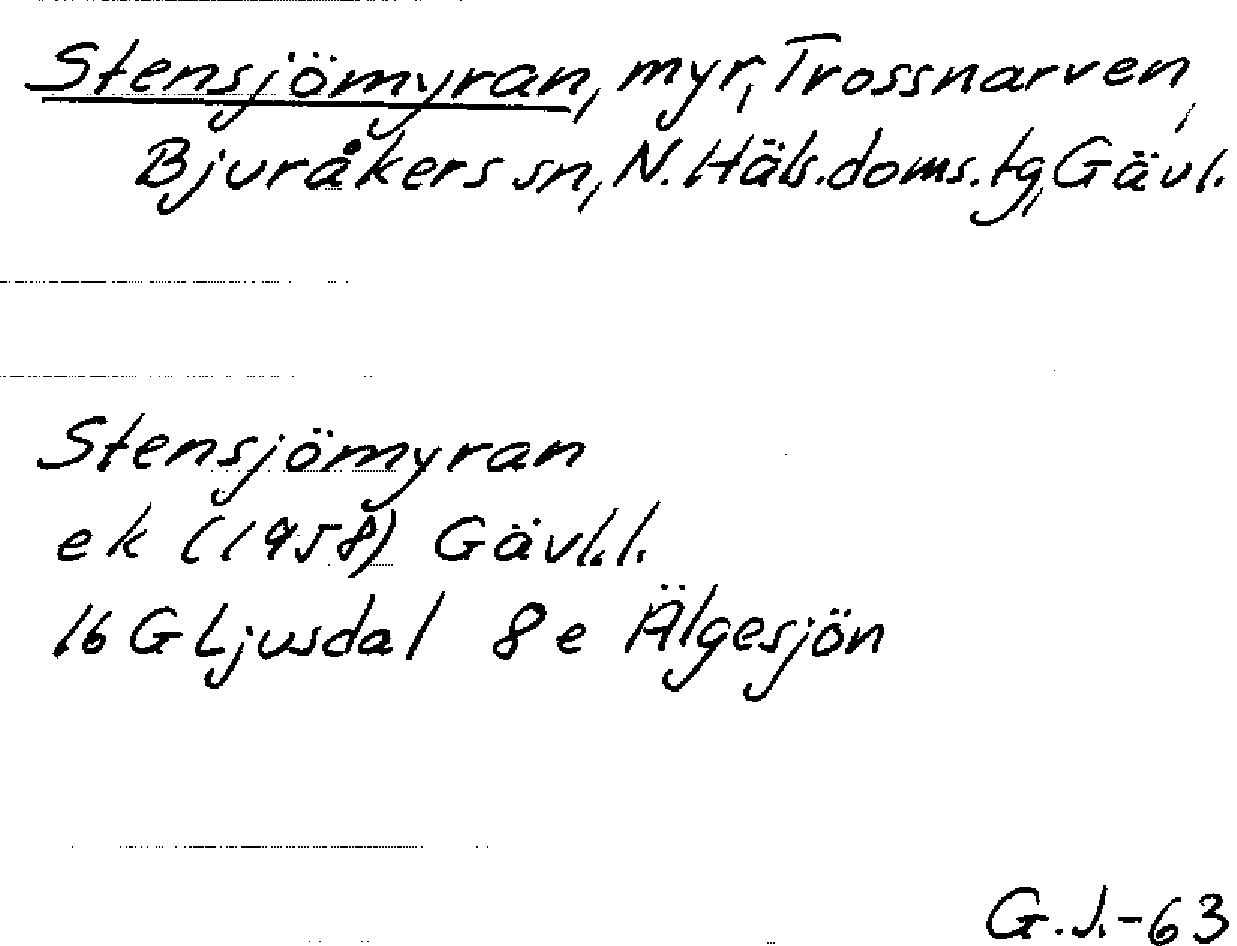 Stensjömyran, myr, Trossnarven,
Bjuråkers sn, N. Häls. doms. tg, Gävl.
Stensjömyran
ek (1958) Gävl. l.
16 G Ljusdal 8 e Älgesjön
G. J. -63